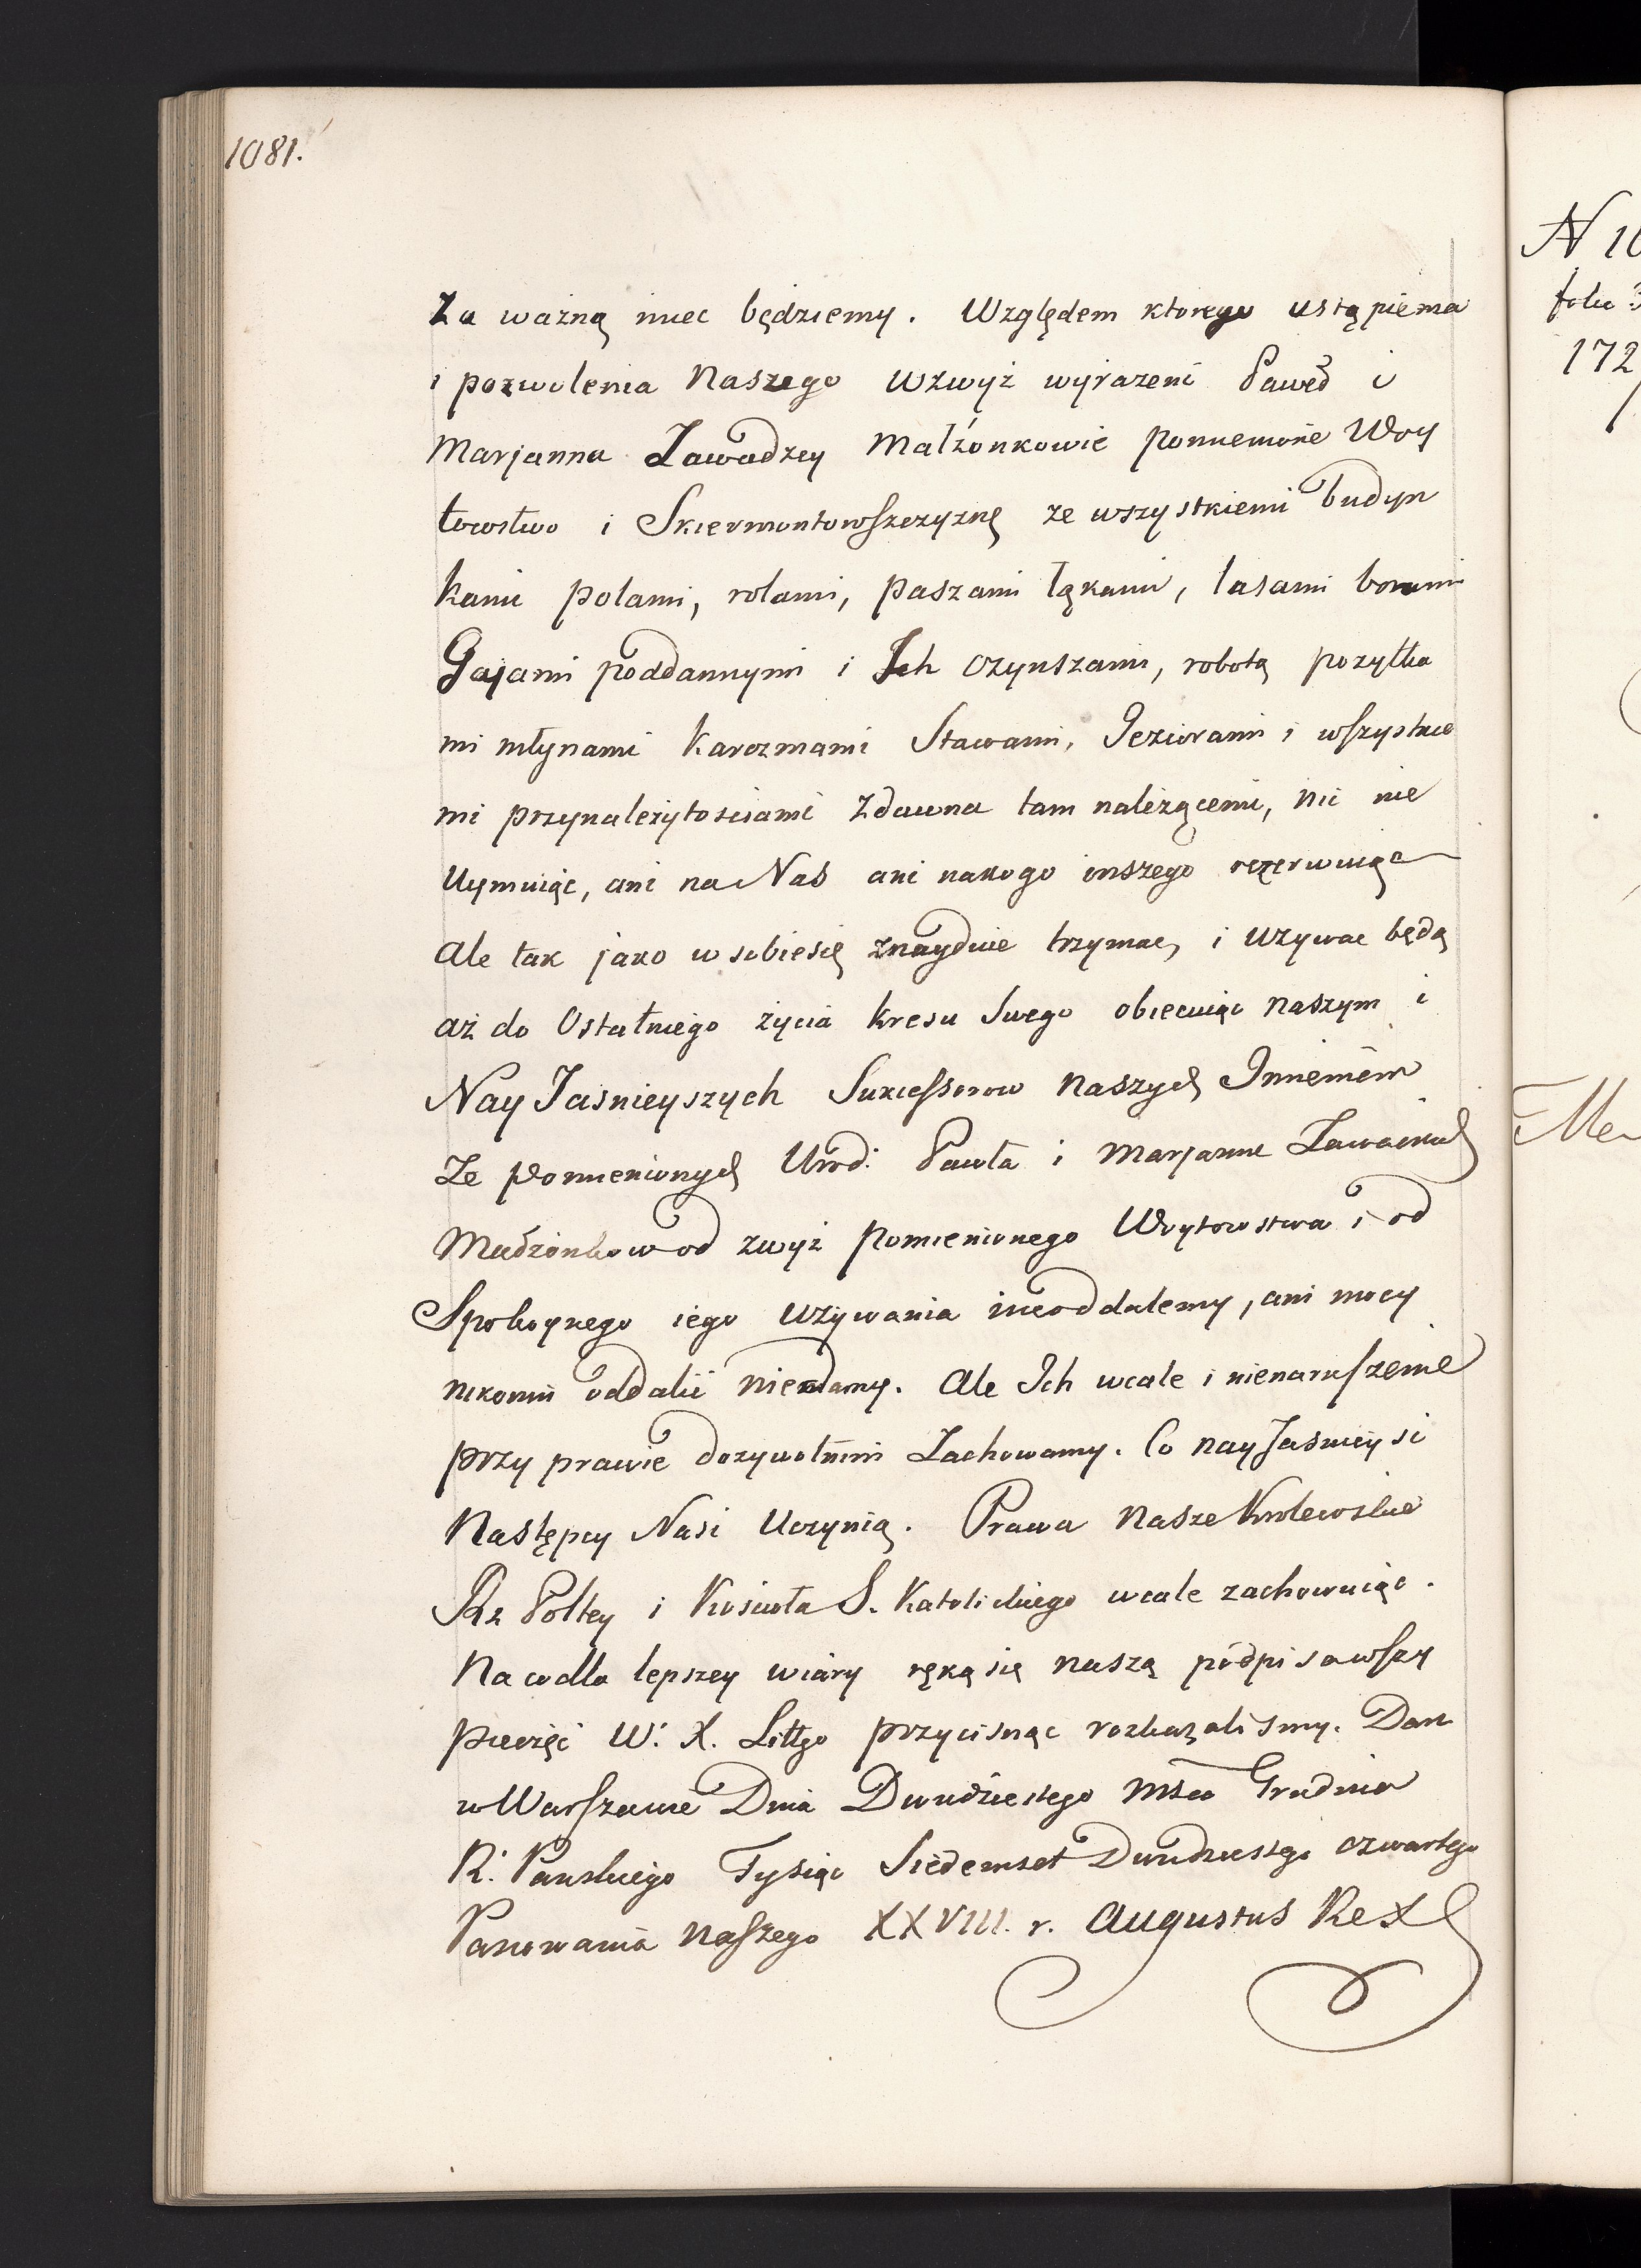 1081.
Za ważną miec będziemy. Względem ktorego ustąpienia
i pozwolenia Naszego wzwyż wyrażeni Paweł i
Marjanna Zawadzcy Małżonkowie pomienione Woy
towstwo i Skiermontowszczyznę ze wszystkiemi budyn
kami polami, rolami, paszami łąkami, lasami borami
Gajami poddannymi i Ich czynszami, robotą pożytka
mi młynami karczmami Stawami, Jeziorami i wszystkie
mi przynależytościami zdawna tam należącemi, nic nie
Uymuiąc, ani na Nas ani nakogo inszego rezerwuiąc
Ale tak jako w sobiesię znayduie trzymac, i używac będą
aż do Ostatniego życia kresu Swego obiecuiąc naszym i
Nay Jasnieyszych Sukcessorow naszych Imieniem
Ze pomienionych Urod: Pawła i Marjanne Zawadzkich
Małżonkow od zwyż pomienionego Woytowstwa i od
Spokoynego iego używania nieoddalemy, ani mocy
nikomu oddalić niedamy. Ale Ich wcale i nienaruszenie
przy prawie dożywotnim Zachowamy. Co nayJasnieysi
Następcy Nasi Uczynią. Prawa Nasze Krolewskie
Rz Poltey i Kościoła S. Katolickiego wcale zachowuiąc.
Na co dla lepszey wiary ręką się naszą podpisawszy
pieczęć W. X. Littgo przycisnąc rozkazalismy. Dan
w Warszawie Dnia Dwudziestego Msca Grudnia
R. Panskiego Tysiąc Siedemset Dwudziestego czwartego
Panowania Naszego XXVIII. r. Augustus Rex
N 10
folio 3
172